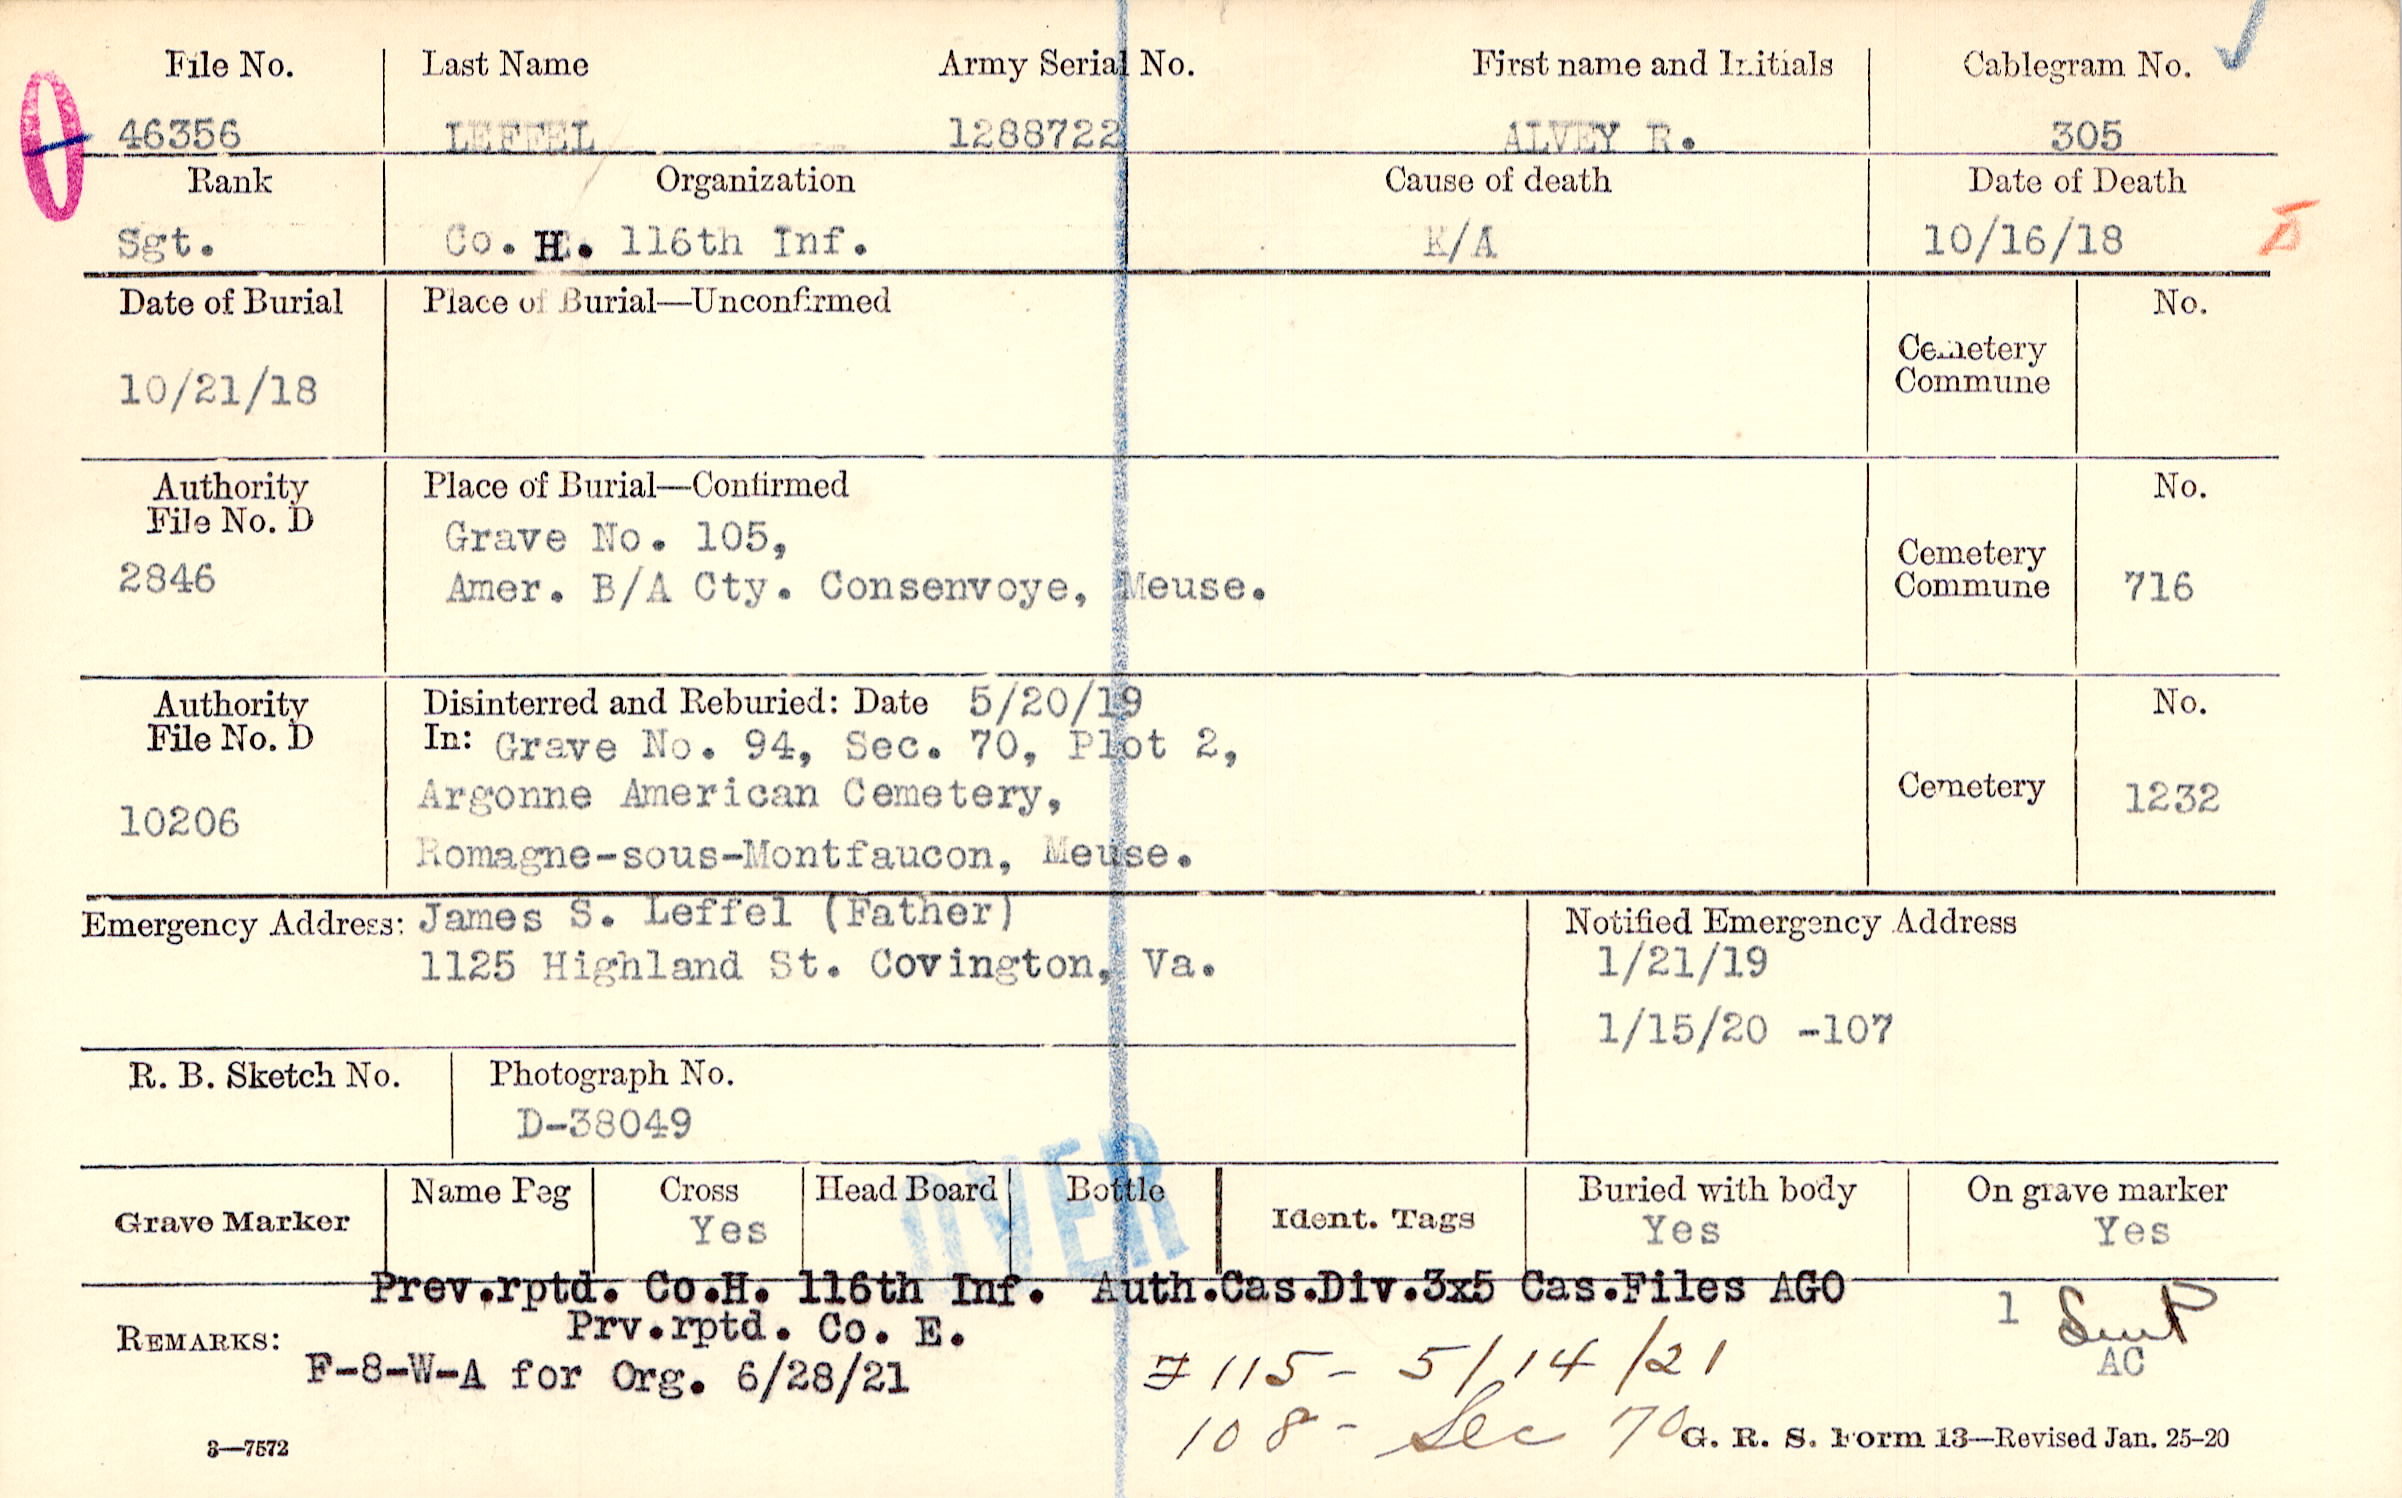 File No. Last Name Army Serial No. First name and Initials Cablegram No.
46356 LEFFEL 1288722 ALVEY R. 305
Rank Organization Cause of death Date of Death
Sgt. Co. H. 116th Inf. K/A 10/16/18
Date of Burial Place of Burial—Unconfirmed No.
Cemetery
Commune
10/21/18
Authority Place of Burial—Confirmed No.
File No. D
Grave No. 105,
2846 Amer. B/A Cty. Consenvoye, Meuse.
Cemetery
Commune 716
Authority Disinterred and Reburied: Date 5/20/19 No.
File No. D In: Grave No. 94, Sec. 70, Plot 2,
Argonne American Cemetery, Cemetery 1232
10206
Romagne-sous-Montfaucon, Meuse.
Emergency Address: James S. Leffel (Father) Notified Emergency Address
1125 Highland St. Covington, Va. 1/21/19
1/15/20 -107
R. B. Sketch No. Photograph No.
D-38049
OVER
Grave Marker Name Peg Cross Head Board Bottle Ident. Tags Buried with body On grave marker
Yes Yes Yes
Prev.rptd. Co.H. 116th Inf. Auth.Cas.Div.3x5 Cas.Files AGO 1
REMARKS: Prv.rptd. Co. E.
AC
F-8-W-A for Org. 6/28/21 115 - 5/14/21
108 - Sec 70
3—7572 G. R. S. Form 13—Revised Jan. 25-20